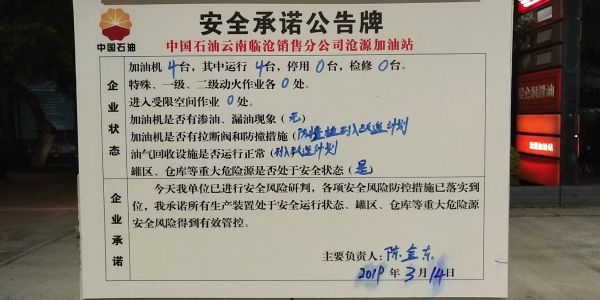 安全承诺公告牌
中国石油
中国石油云南临沧销售分公司沧源加油站
企业状态
加油机4台，其中运行4台，停用0台，检修0台。
特殊、一级、二级动火作业各0处。
进入受限空间作业0处。
加油机是否有渗油、漏油现象（无）
加油机是否有拉断阀和防撞措施（防撞柱列入改造计划
油气回收设施是否运行正常（列入改造计划
罐区、仓库等重大危险源是否处于安全状态（是）
企业承诺
今天我单位已进行安全风险研判，各项安全风险防控措施已落实到
位，我承诺所有生产装置处于安全运行状态、罐区、仓库等重大危险源
安全风险得到有效管控。
主要负责人：陈金东
2019年3月14日
昆仑润滑油